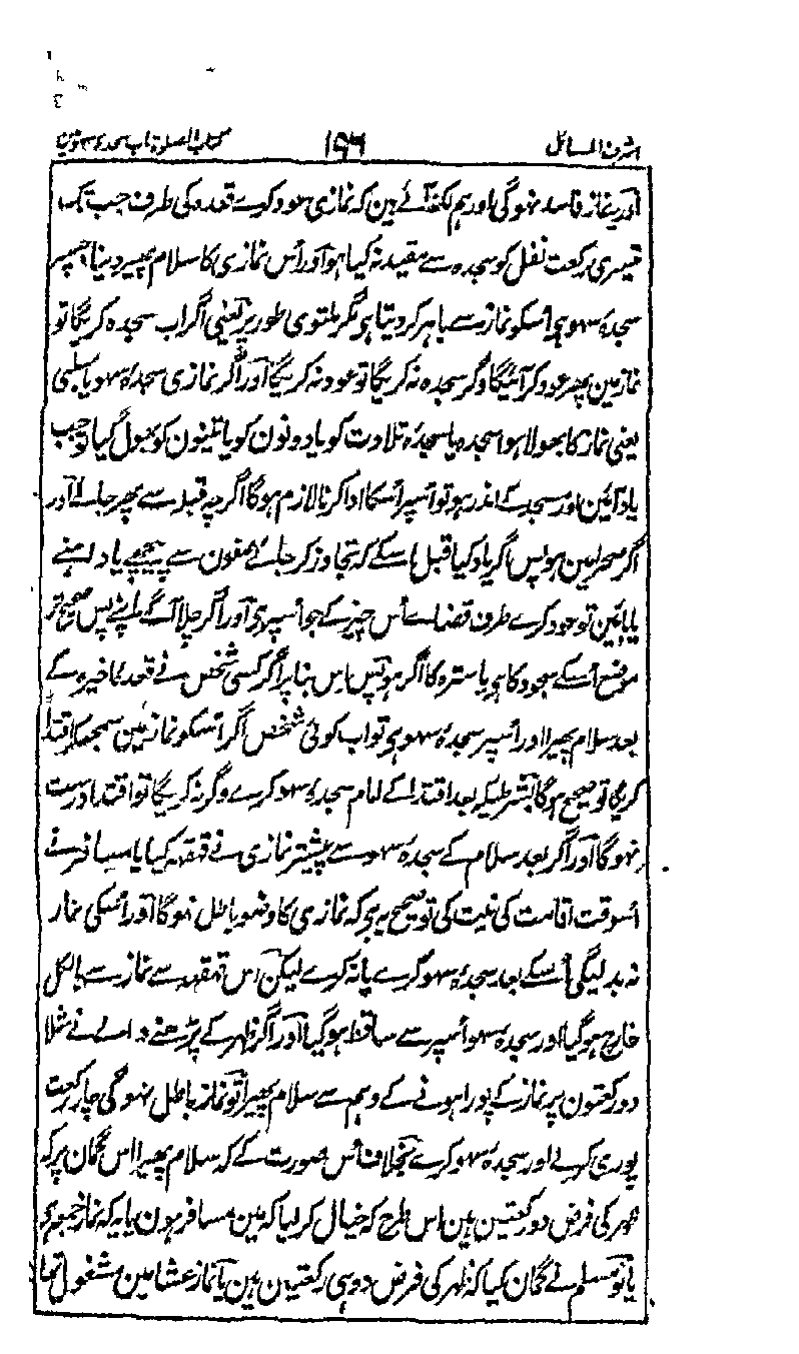 اشرف المسائل ۱۹۶ کتاب الصلوۃ باب سجدۂ سہو
اور یہ نماز فاسد نہوگی اور ہم لکھ آئے ہین کہ نمازی عود کرے قعدہ کی طرف جب تک
تیسری رکعت نفل کو سجدہ سے مقید نہ کیا ہو اور اُس نمازی کا سلام پھیر دینا جسپر
سجدۂ سہو ہی اُسکو نماز سے باہر کر دیتا ہی مگر ملتوی طور پر یعنی اگر اب سجدہ کریگا تو
نماز مین پھر عود کر آئیگا وگر سجدہ نہ کریگا تو عود نہ کریگا اور اگر نمازی سجدۂ سہو یا صلبی
یعنی نماز کا بھولا ہوا سجدہ یا سجدۂ تلاوت کو یا دونون کو یا تینون کو بھول گیا تو جب
یاد آئین اور مسجد کے اندر ہو تو اُسپر اُسکا ادا کرنا لازم ہوگا اگرچہ قبلہ سے پھر جائے اور
اگر صحرا مین ہو پس اگر یاد کیا قبل اسکے کہ تجاوز کر جائے صفون سے پیچھے یا داہنے
یا بائین تو عود کرے طرف قضاے اُس چیز کے جو اُسپر ہی اور اگر چلا آگے اپنے پس صحیح تر
موضع اُسکے سجود کا ہی یا سترہ کا اگر ہو پس اس بنا پر اگر کسی شخص نے قعدہ اخیرہ کے
بعد سلام پھیرا اور اُسپر سجدۂ سہو ہی تو اب کوئی شخص اگر اُسکو نماز مین سمجھکر اقتدا
کریگا تو صحیح ہوگا بشرطیکہ بعد اقتدا کے امام سجدۂ سہو کرے وگر نہ کریگا تو اقتدا درست
نہوگا اور اگر بعد سلام کے سجدۂ سہو سے پیشتر نمازی نے قہقہہ کیا یا مسافر نے
اُسوقت اقامت کی نیت کی تو صحیح یہ ہی کہ نمازی کا وضو باطل نہوگا اور اُسکی نماز
نہ بدلیگی اُسکے بعد سجدۂ سہو کرے یا نہ کرے لیکن اس قہقہہ سے نماز سے بالکل
خارج ہوگیا اور سجدۂ سہو اُسپر سے ساقط ہوگیا اور اگر ظہر کے پڑھنے والے نے مثلا
دو رکعتون پر نماز کے پورا ہونے کے وہم سے سلام پھیرا تو نماز باطل نہوگی چار رکعت
پوری کرے اور سجدۂ سہو کرے بخلاف اُس صورت کے کہ سلام پھیرا اس گمان پر کہ
ظہر کی فرض دو رکعتین ہین اس طرح کہ خیال کر لیا کہ مین مسافر ہون یا یہ کہ نماز جمعہ ہی
یا نو مسلم نے گمان کیا کہ ظہر کی فرض دو ہی رکعتین ہین یا نماز عشا مین مشغول تھا